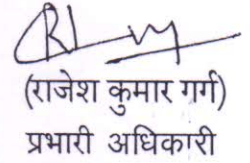 (राजेश कुमार गर्ग)
प्रभारी अधिकारी